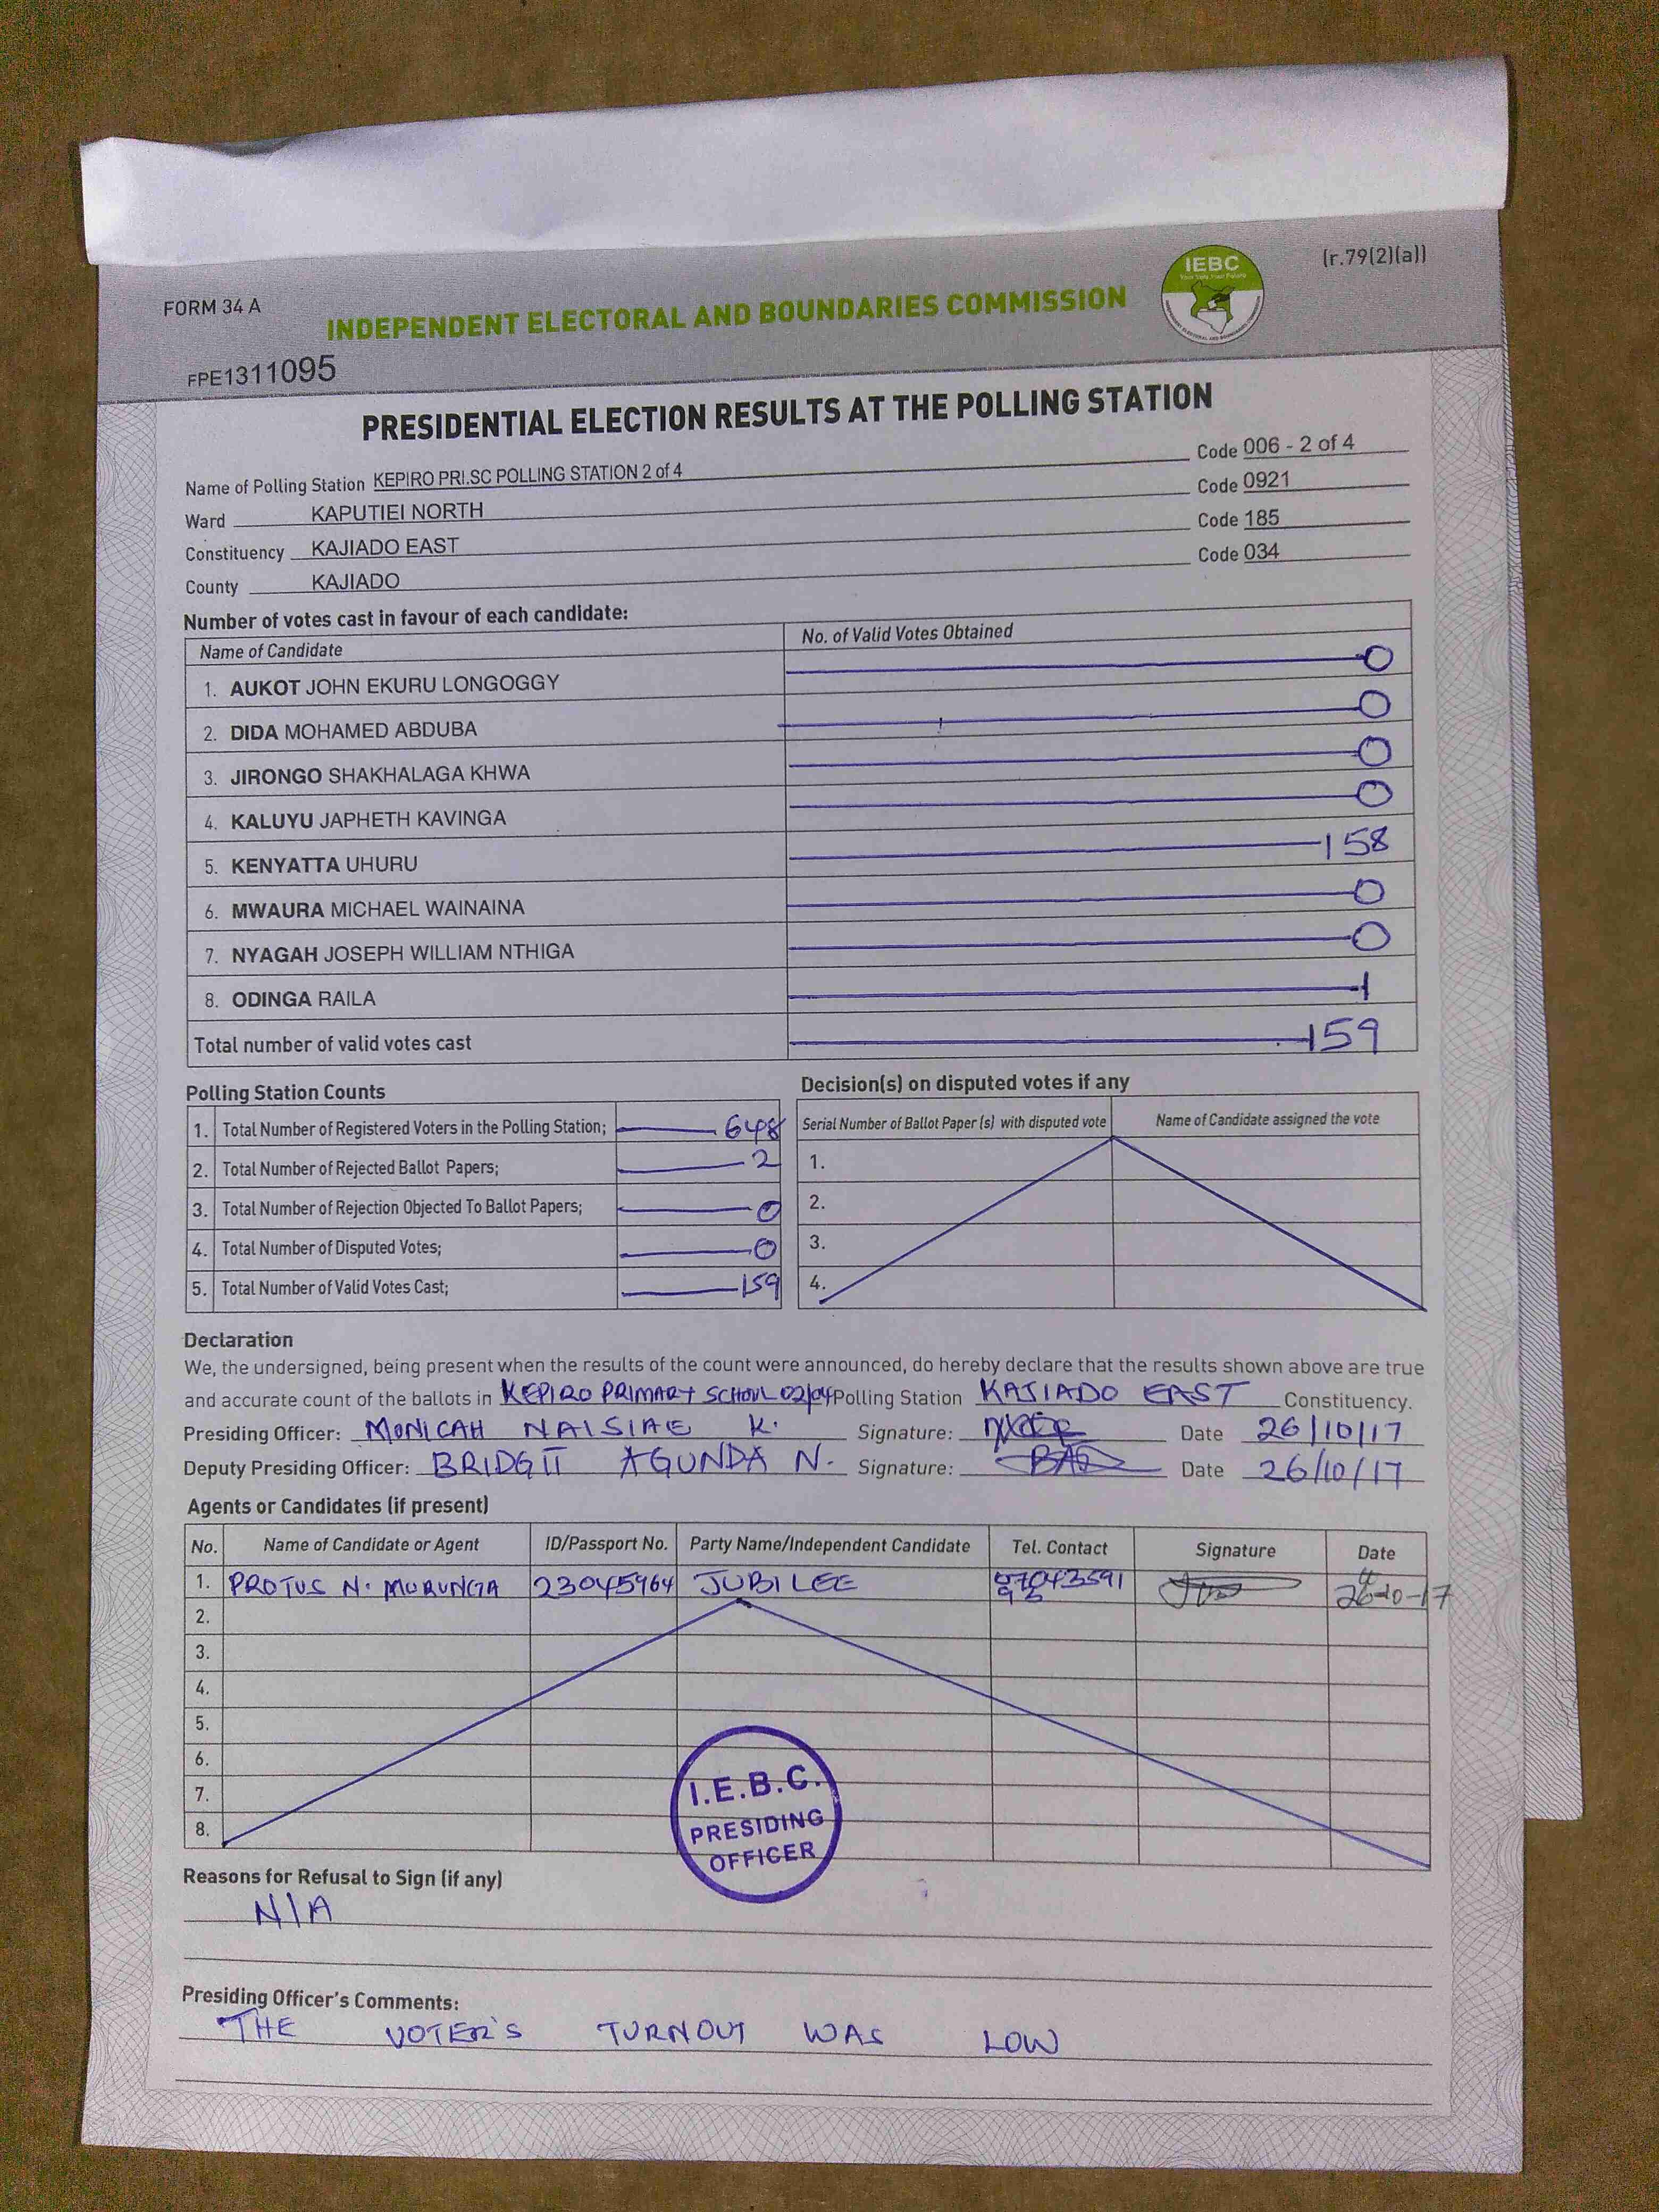 IEBC
(r.79(2)(a))
FORM 34 A
INDEPENDENT ELECTORAL AND BOUNDARIES COMMISSION
FPE1311095
PRESIDENTIAL ELECTION RESULTS AT THE POLLING STATION
Name of Polling Station KEPIRO PRI.SC POLLING STATION 2 of 4 Code 006 - 2 of 4
Ward KAPUTIEI NORTH Code 0921
Constituency KAJIADO EAST Code 185
County KAJIADO Code 034
Number of votes cast in favour of each candidate:
Name of Candidate No. of Valid Votes Obtained
1. AUKOT JOHN EKURU LONGOGGY 0
2. DIDA MOHAMED ABDUBA 0
3. JIRONGO SHAKHALAGA KHWA 0
4. KALUYU JAPHETH KAVINGA 0
5. KENYATTA UHURU 158
6. MWAURA MICHAEL WAINAINA 0
7. NYAGAH JOSEPH WILLIAM NTHIGA 0
8. ODINGA RAILA 1
Total number of valid votes cast 159
Polling Station Counts
1. Total Number of Registered Voters in the Polling Station; 648
2. Total Number of Rejected Ballot Papers; 2
3. Total Number of Rejection Objected To Ballot Papers; 0
4. Total Number of Disputed Votes; 0
5. Total Number of Valid Votes Cast; 159
Decision(s) on disputed votes if any
Serial Number of Ballot Paper (s) with disputed vote Name of Candidate assigned the vote
1.
2.
3.
4.
Declaration
We, the undersigned, being present when the results of the count were announced, do hereby declare that the results shown above are true
and accurate count of the ballots in KEPIRO PRIMARY SCHOOL 02/04 Polling Station KAJIADO EAST Constituency.
Presiding Officer: MONICAH NAISIAE K. Signature: Date 26/10/17
Deputy Presiding Officer: BRIDGIT AGUNDA N. Signature: Date 26/10/17
Agents or Candidates (if present)
No. Name of Candidate or Agent ID/Passport No. Party Name/Independent Candidate Tel. Contact Signature Date
1. PROTUS N. MURUNGA 23045964 JUBILEE 26-10-17
2.
3.
4.
5.
6.
7.
8.
I.E.B.C.
PRESIDING
OFFICER
Reasons for Refusal to Sign (if any)
N/A
Presiding Officer's Comments:
THE VOTER'S TURNOUT WAS LOW